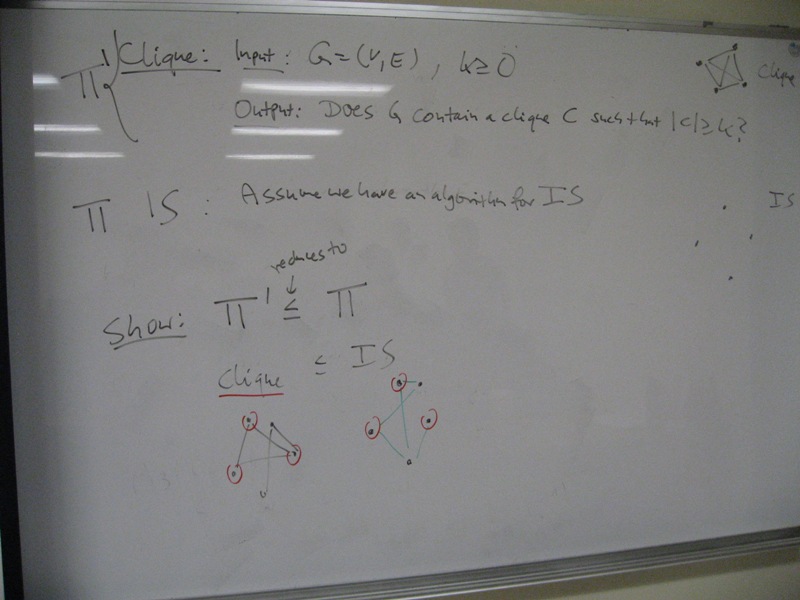 Π' Clique: Input: G=(V,E), k≥0
Clique
Output: Does G contain a clique C such that |C|≥k?
Π IS: Assume we have an algorithm for IS
IS
reduces to
Show: Π' ≤ Π
Clique ≤ IS